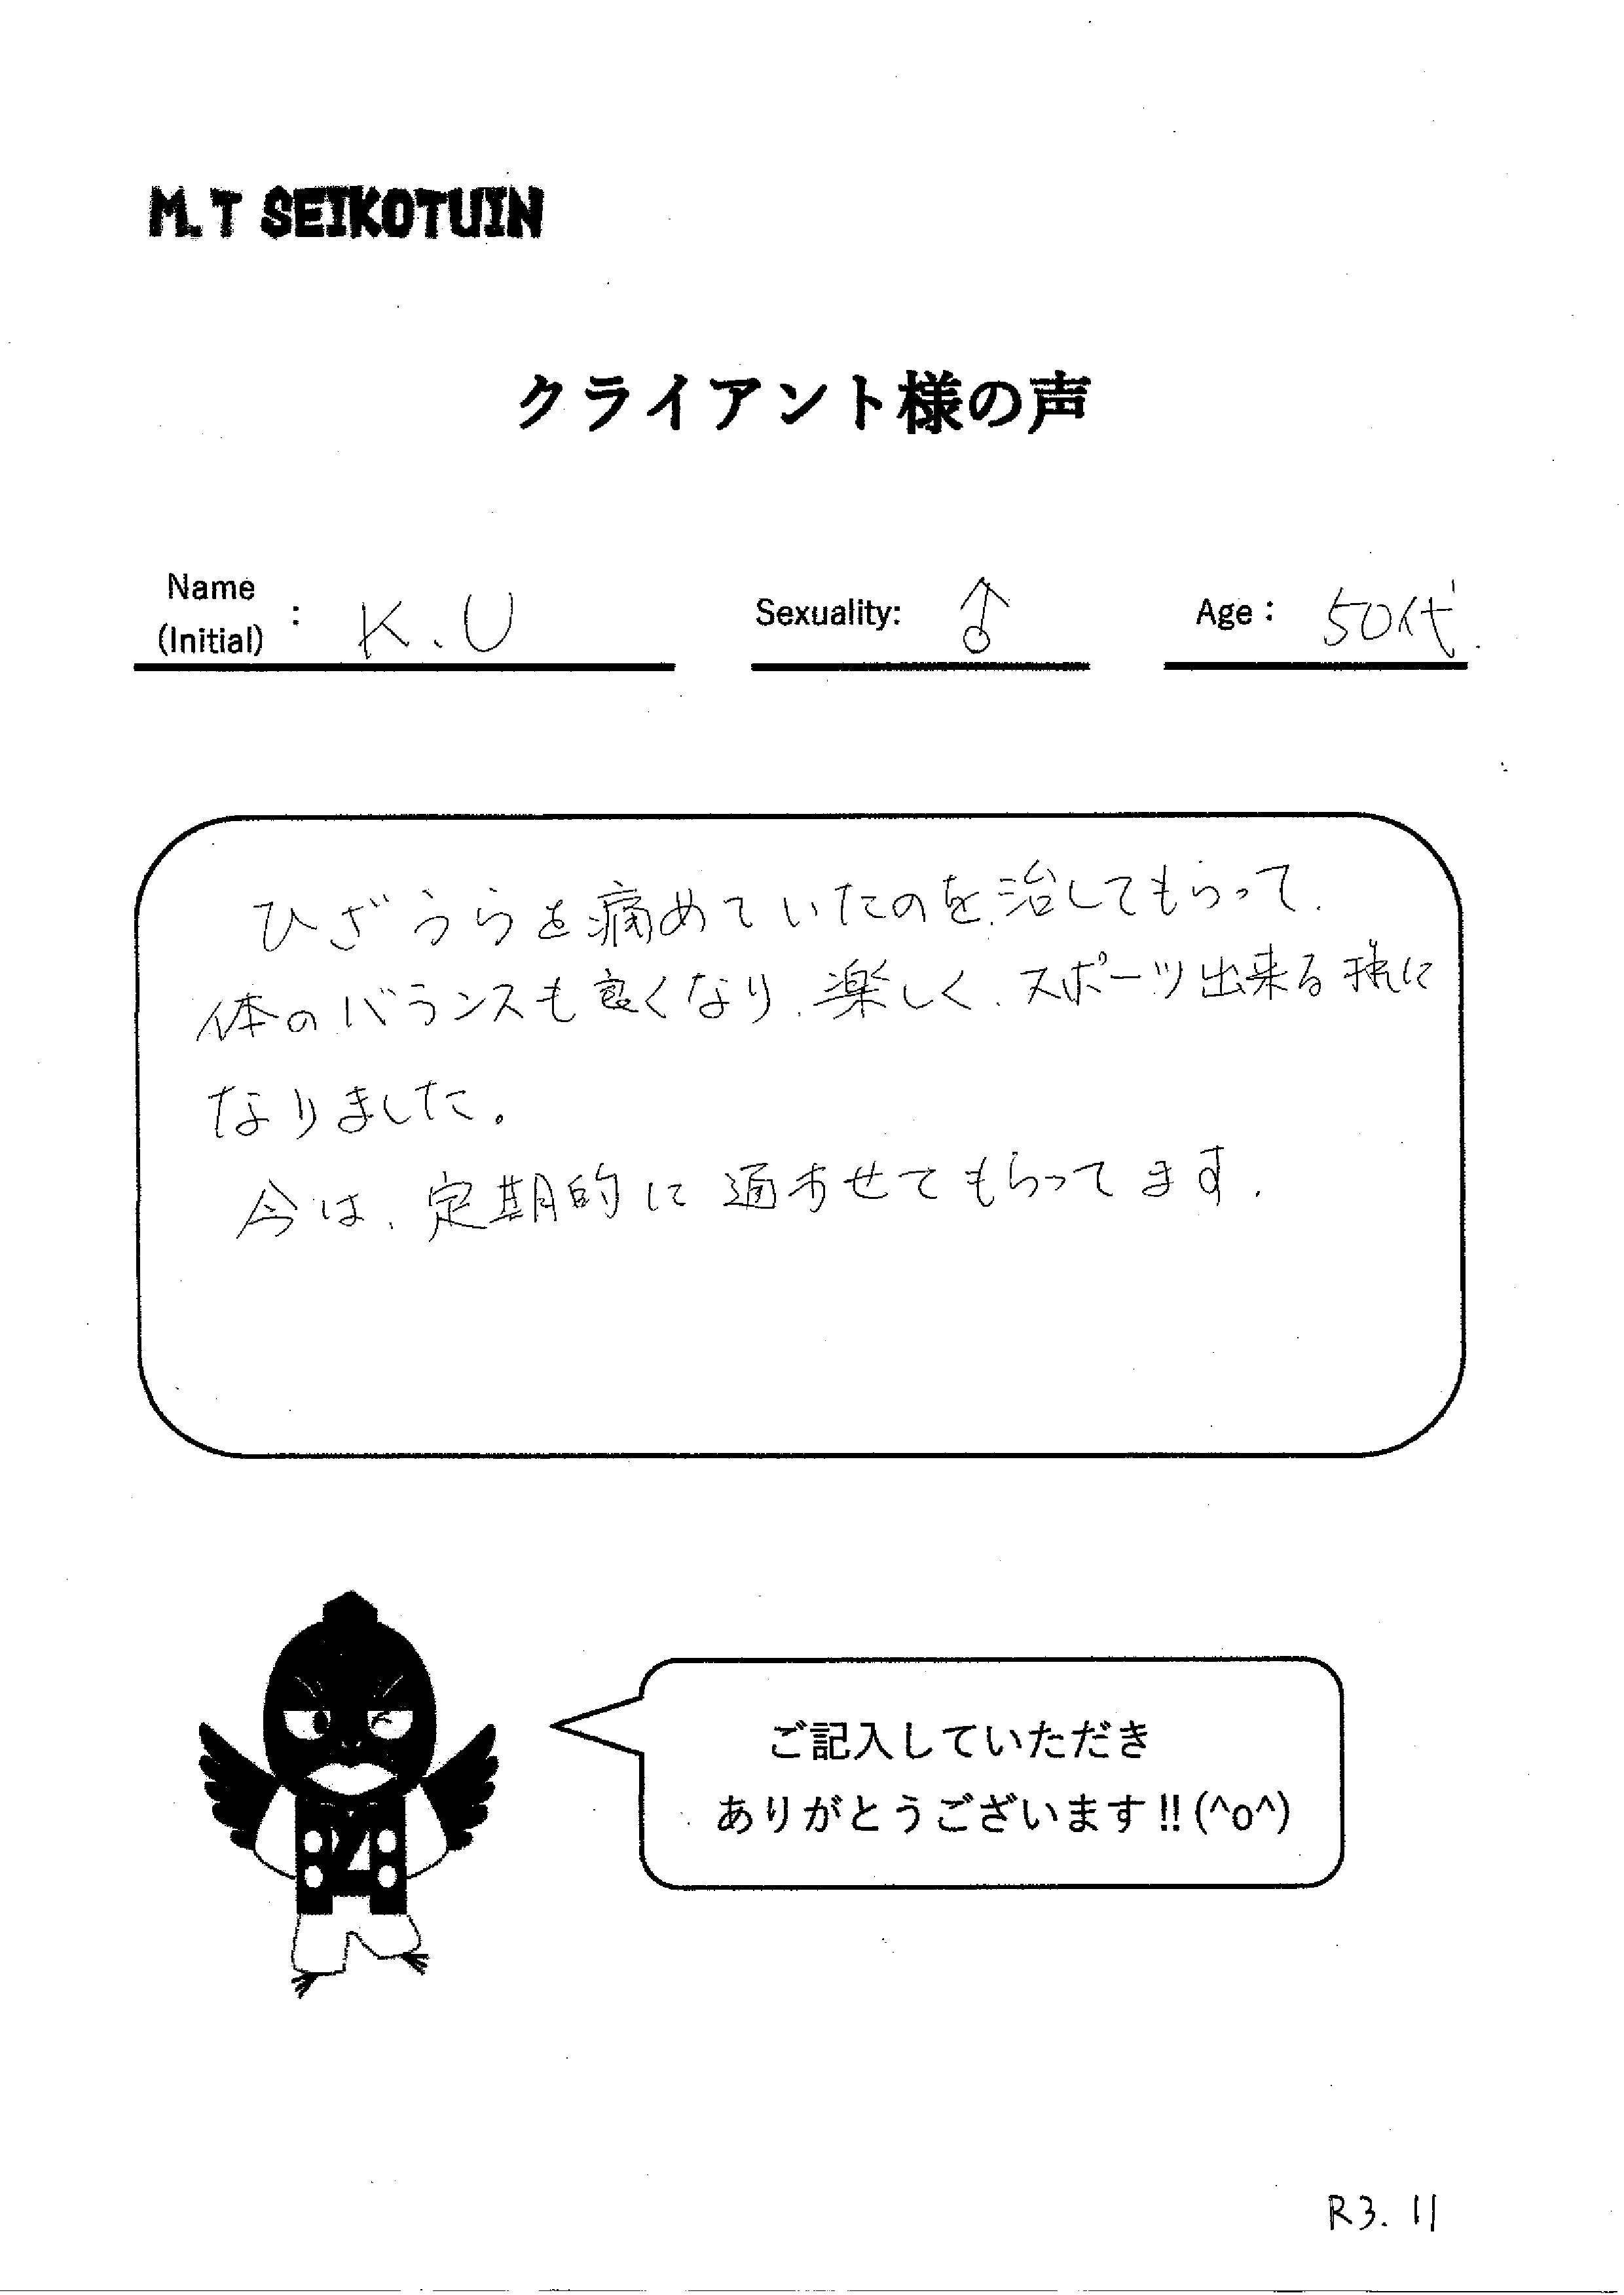 M.T SEIKOTUIN
クライアント様の声
Name
(Initial) : K.U
Sexuality: ♂
Age : 50代.
ひざうらを痛めていたのを、治してもらって、
体のバランスも良くなり、楽しく、スポーツ出来る様に
なりました。
今は、定期的に通わせてもらってます。
ご記入していただき
ありがとうございます!!(^o^)
R3.11